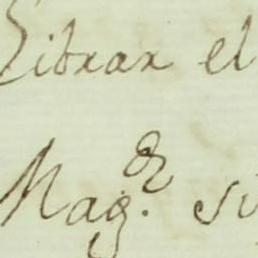 Librar el
Mag.^d si